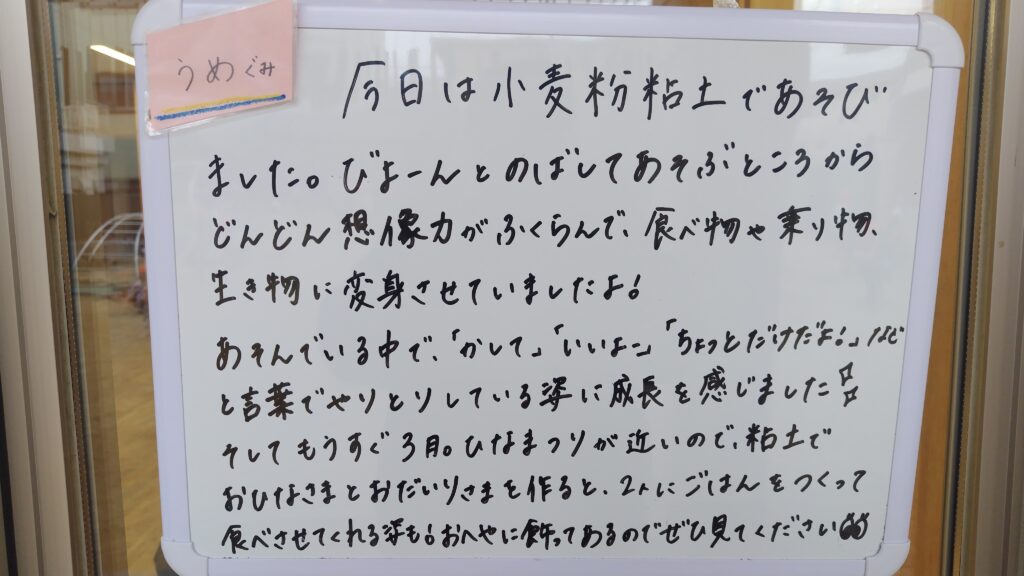 うめぐみ
今日は小麦粉粘土であそび
ました。びよーんとのばしてあそぶところから
どんどん想像力がふくらんで、食べ物や乗り物、
生き物に変身させていましたよ!
あそんでいる中で、「かして」「いいよー」「ちょっとだけだよ!」など
と言葉でやりとりしている姿に成長を感じました
そしてもうすぐ3月。ひなまつりが近いので、粘土で
おひなさまとおだいりさまを作ると、2人にごはんをつくって
食べさせてくれる姿も!おへやに飾ってあるのでぜひ見てください